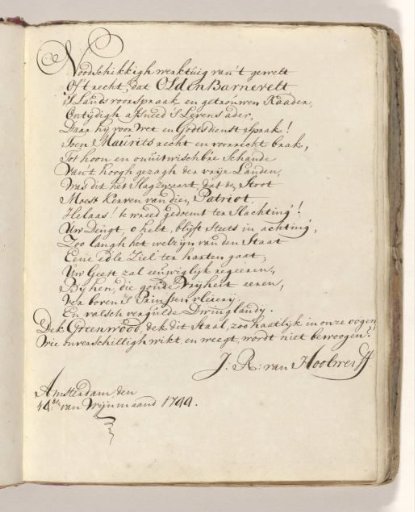 Noodschikkigh werktuig van't gewelt
Of t recht, dat Oldenbarnevelt
's Lants voorspraak en getrouwen Raader,
Ontydigh afsneed 's Levens ader,
Daar hy voor Wet en Godtsdienst sprak!
Toen Maurits recht en voorrecht brak,
Tot hoon en onuitwischb're Schande
Van't hoogh gezagh der vrije Landen,
Was dit het Slagzwaart, dat den Stoot
Moest klooven van dien Patriot
Helaas! te wreed gedoemt ter Slachting!
Uw Deugt, o helt, blyft steets in achting,
Zoo langh het welzyn van den Staat
Eene edle Ziel ter harten gaat,
Uw Geest zal eeuwiglyk regeeren,
By hen, die goude Vryheit eeren,
Ver boven 's Prinsen vleiery
En valsch vergulde Dwinglandy.
Dek Greenwood, dek dit Staal, zoo haatlyk in onze oogen
Wie onverschilligh wikt en weegt, wordt niet bewoogen.
J. R: van Hoolwerff
Amsterdam den
14.den van Wynmaand 1744.